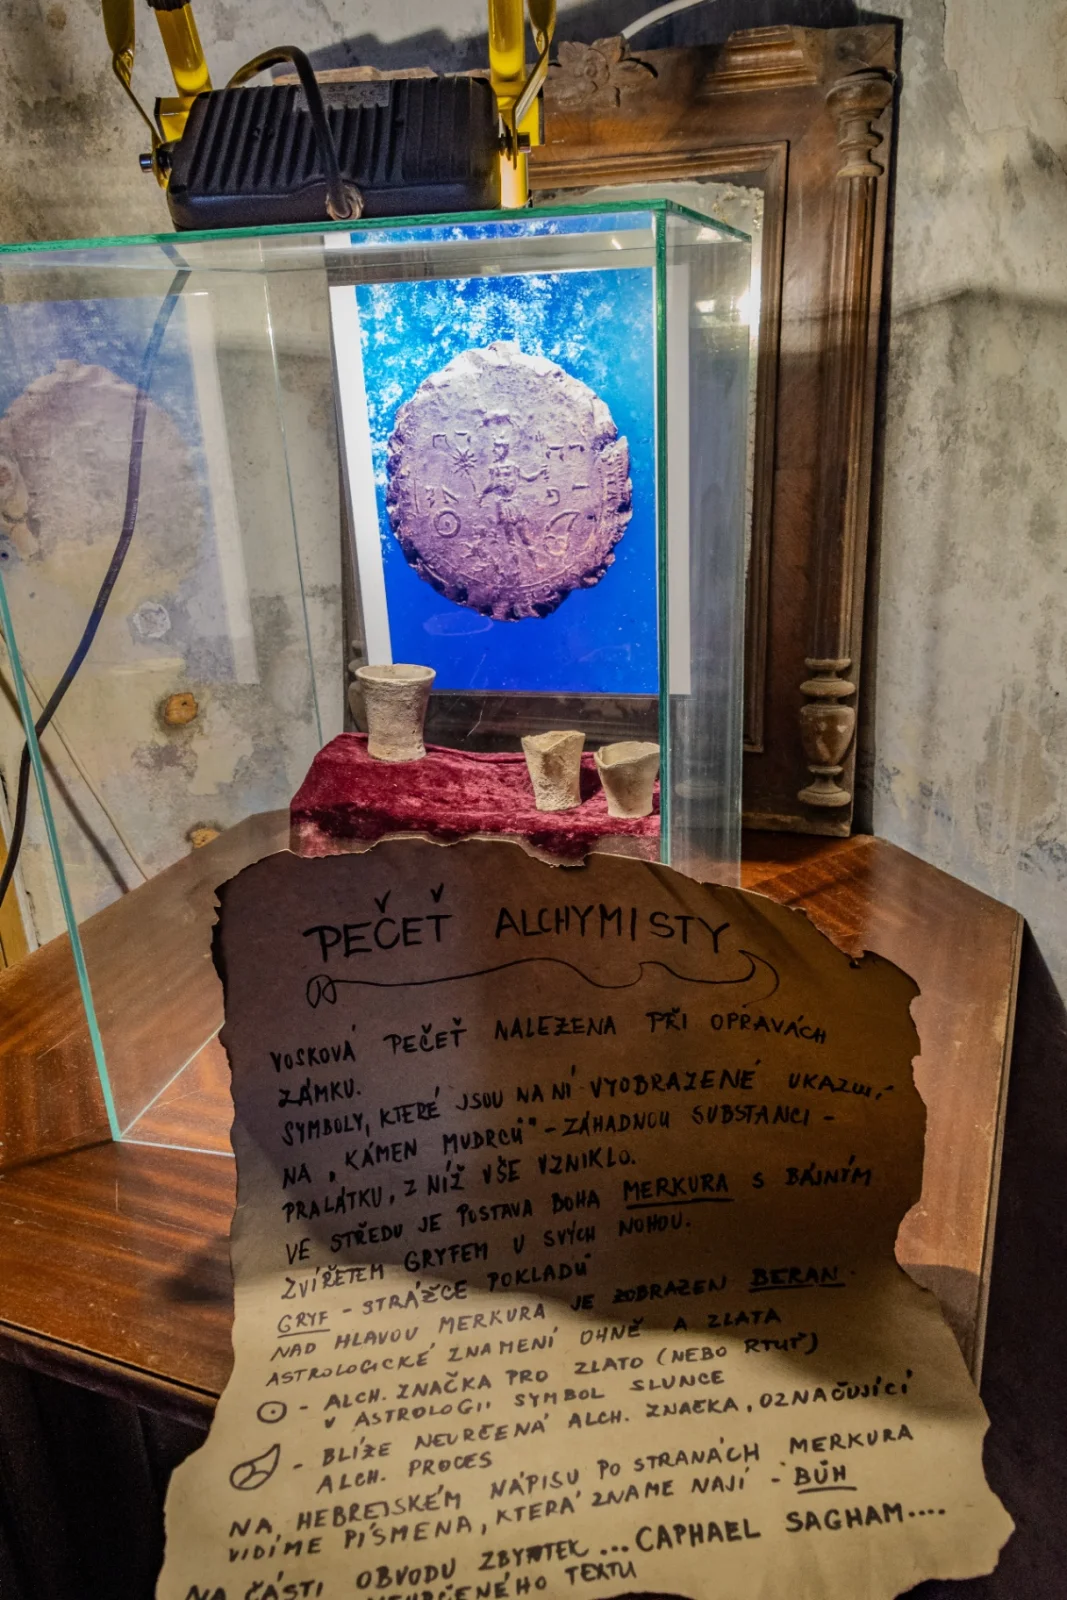 PEČEŤ ALCHYMISTY
VOSKOVÁ PEČEŤ NALEZENA PŘI OPRAVÁCH
ZÁMKU.
SYMBOLY, KTERÉ JSOU NA NÍ VYOBRAZENÉ UKAZUJÍ
NA „KÁMEN MUDRCŮ" - ZÁHADNOU SUBSTANCI -
PRALÁTKU, Z NÍŽ VŠE VZNIKLO.
VE STŘEDU JE POSTAVA BOHA MERKURA S BÁJNÝM
ZVÍŘETEM GRYFEM U SVÝCH NOHOU.
GRYF - STRÁŽCE POKLADŮ
NAD HLAVOU MERKURA JE ZOBRAZEN BERAN -
ASTROLOGICKÉ ZNAMENÍ OHNĚ A ZLATA
☉ - ALCH. ZNAČKA PRO ZLATO (NEBO RTUŤ)
V ASTROLOGII SYMBOL SLUNCE
- BLÍŽE NEURČENÁ ALCH. ZNAČKA, OZNAČUJÍCÍ
ALCH. PROCES
NA HEBREJSKÉM NÁPISU PO STRANÁCH MERKURA
VIDÍME PÍSMENA, KTERÁ ZNAMENAJÍ - BŮH
NA ČÁSTI OBVODU ZBYTEK ... CAPHAEL SAGHAM....
NEURČENÉHO TEXTU